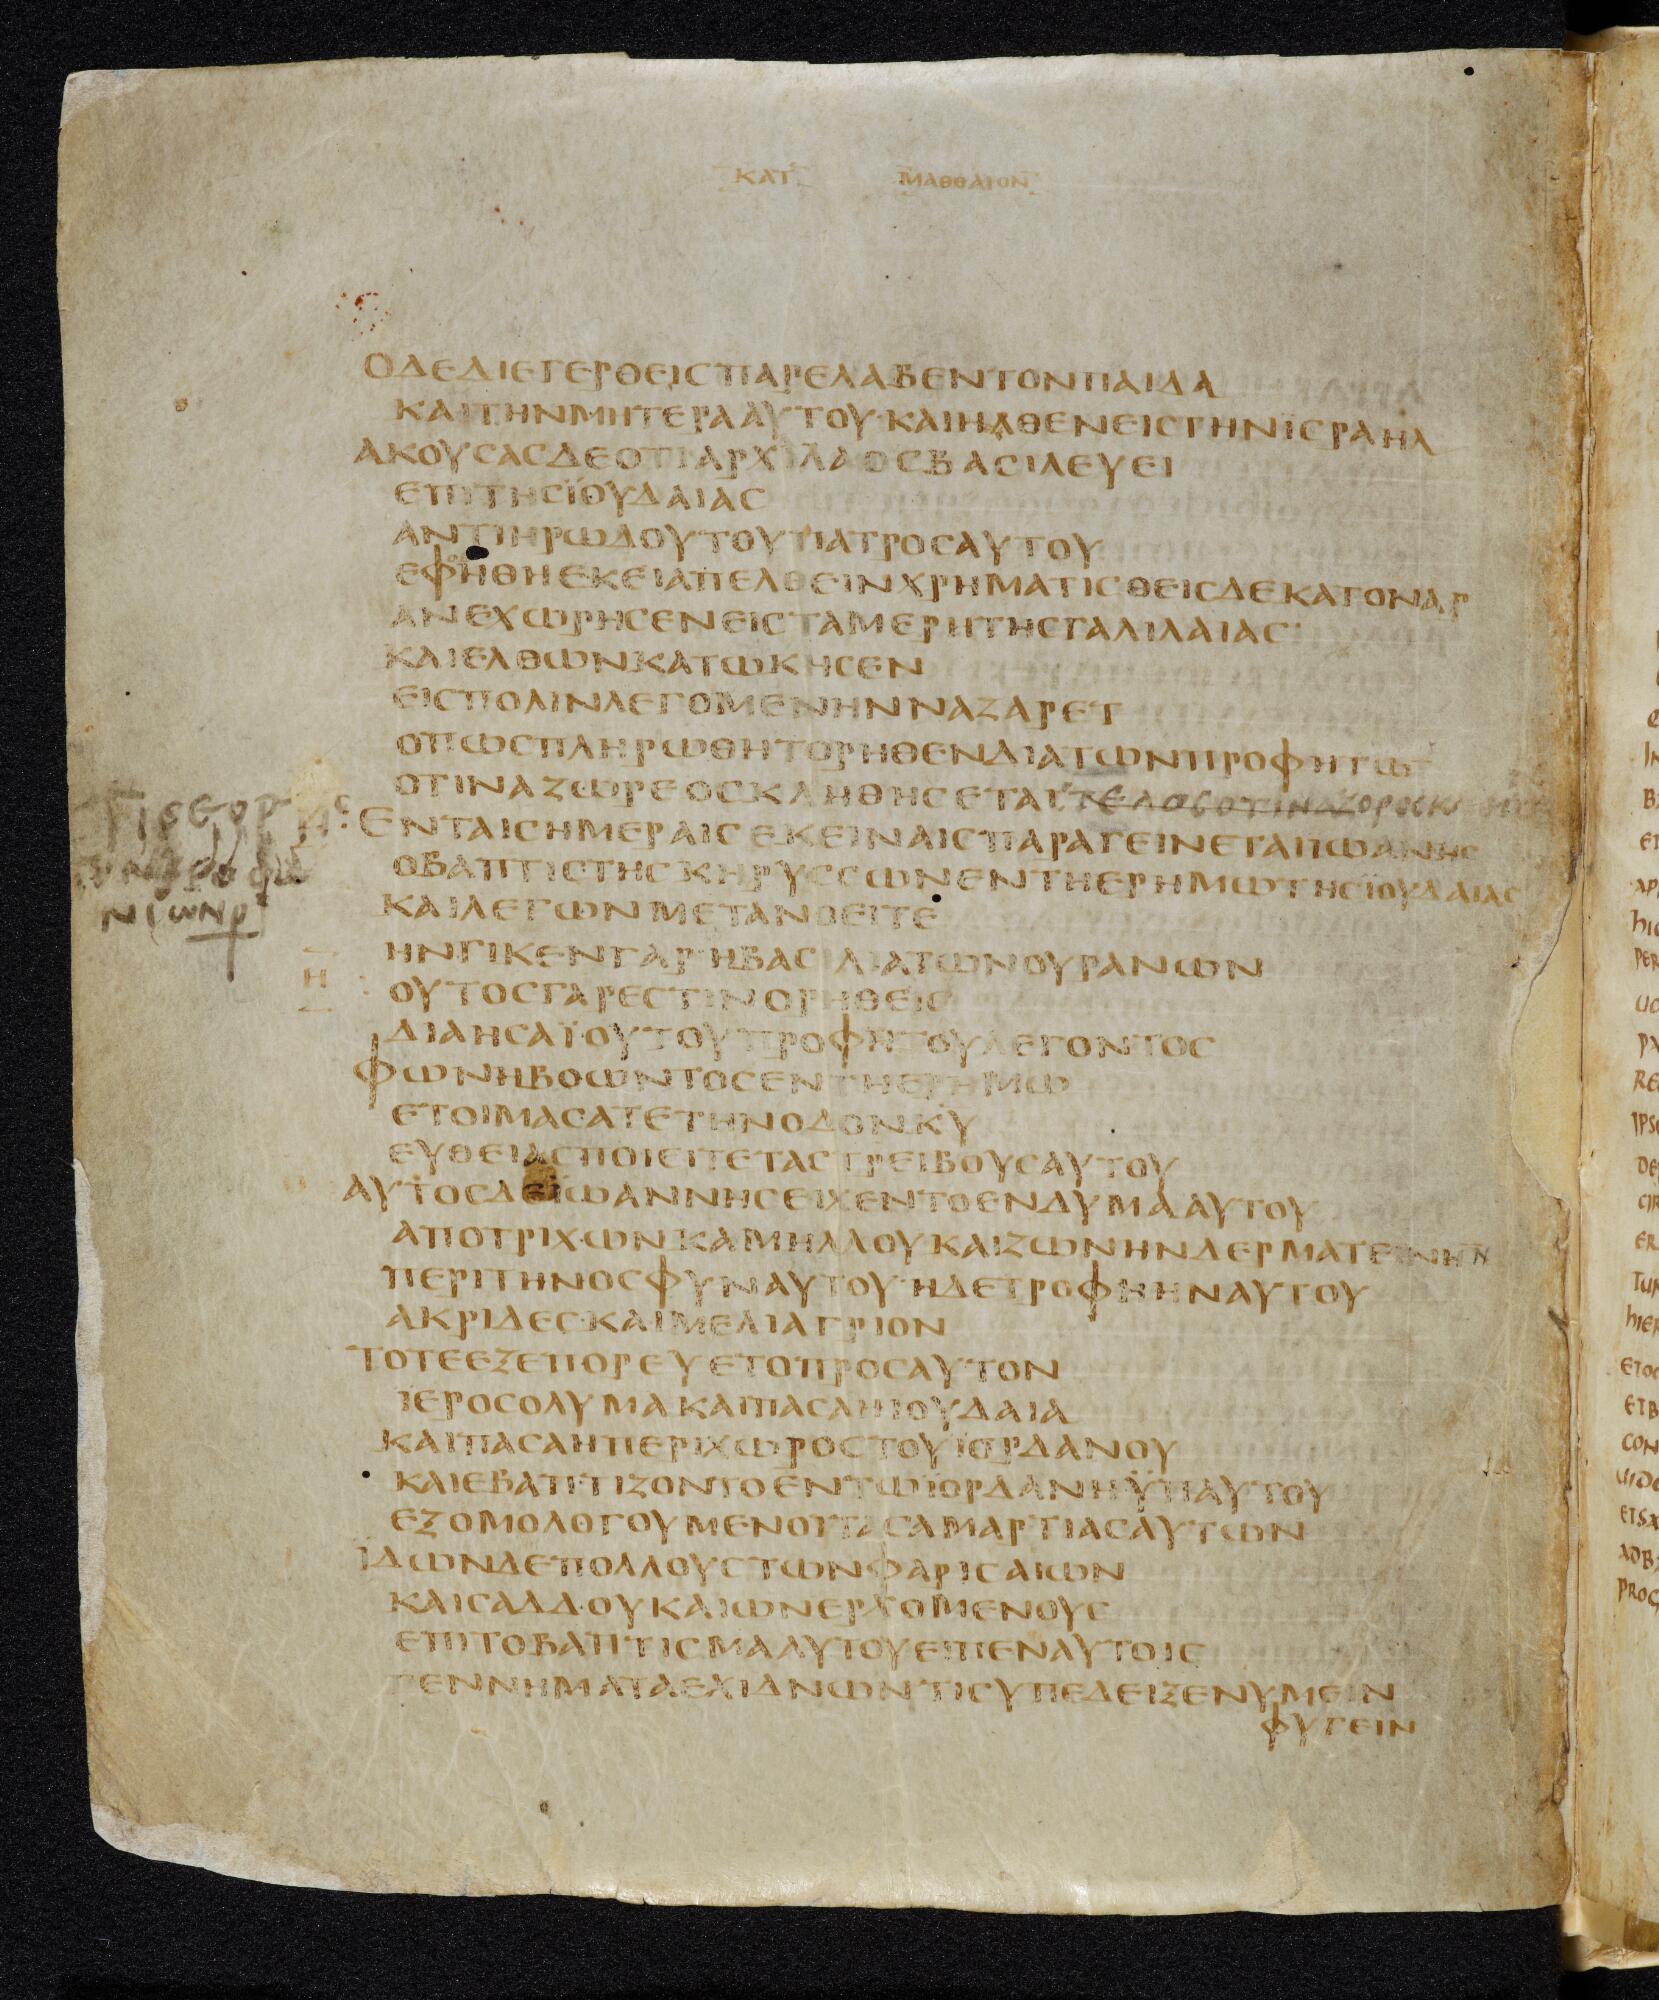 ΚΑΤ ΜΑΘΘΑΙΟΝ
ΟΔΕΔΙΕΓΕΡΘΕΙΣΠΑΡΕΛΑΒΕΝΤΟΝΠΑΙΔΑ
ΚΑΙΤΗΝΜΗΤΕΡΑΑΥΤΟΥ·ΚΑΙΗΛΘΕΝΕΙΣΓΗΝΪΣΡΑΗΛ
ΑΚΟΥΣΑΣΔΕΟΤΙΑΡΧΙΛΑΟΣΒΑΣΙΛΕΥΕΙ
ΕΠΙΤΗΣΪΟΥΔΑΙΑΣ
ΑΝΤΙΗΡΩΔΟΥΤΟΥΠΑΤΡΟΣΑΥΤΟΥ
ΕΦΟΒΗΘΗΕΚΕΙΑΠΕΛΘΕΙΝΧΡΗΜΑΤΙΣΘΕΙΣΔΕΚΑΤΟΝΑΡ
ΑΝΕΧΩΡΗΣΕΝΕΙΣΤΑΜΕΡΗΤΗΣΓΑΛΙΛΑΙΑΣ·
ΚΑΙΕΛΘΩΝΚΑΤΩΚΗΣΕΝ
ΕΙΣΠΟΛΙΝΛΕΓΟΜΕΝΗΝΝΑΖΑΡΕΤ
ΟΠΩΣΠΛΗΡΩΘΗΤΟΡΗΘΕΝΔΙΑΤΩΝΠΡΟΦΗΤΩ
ΟΤΙΝΑΖΩΡΕΟΣΚΛΗΘΗΣΕΤΑΙ
ΕΝΤΑΙΣΗΜΕΡΑΙΣΕΚΕΙΝΑΙΣΠΑΡΑΓΕΙΝΕΤΑΙΪΩΑΝΗΣ
ΟΒΑΠΤΙΣΤΗΣΚΗΡΥΣΣΩΝΕΝΤΗΕΡΗΜΩΤΗΣΪΟΥΔΑΙΑΣ
ΚΑΙΛΕΓΩΝΜΕΤΑΝΟΕΙΤΕ
ΗΝΓΙΚΕΝΓΑΡΗΒΑΣΙΛΙΑΤΩΝΟΥΡΑΝΩΝ
Η ΟΥΤΟΣΓΑΡΕΣΤΙΝΟΡΗΘΕΙΣ
ΔΙΑΗΣΑΪΟΥΤΟΥΠΡΟΦΗΤΟΥΛΕΓΟΝΤΟΣ
ΦΩΝΗΒΟΩΝΤΟΣΕΝΤΗΕΡΗΜΩ
ΕΤΟΙΜΑΣΑΤΕΤΗΝΟΔΟΝΚΥ
ΕΥΘΕΙΑΣΠΟΙΕΙΤΕΤΑΣΤΡΕΙΒΟΥΣΑΥΤΟΥ
ΑΥΤΟΣΔΕΪΩΑΝΝΗΣΕΙΧΕΝΤΟΕΝΔΥΜΑΑΥΤΟΥ
ΑΠΟΤΡΙΧΩΝΚΑΜΗΛΛΟΥΚΑΙΖΩΝΗΝΔΕΡΜΑΤΕΙΝΗΝ
ΠΕΡΙΤΗΝΟΣΦΥΝΑΥΤΟΥ·ΗΔΕΤΡΟΦΗΗΝΑΥΤΟΥ
ΑΚΡΙΔΕΣ·ΚΑΙΜΕΛΙΑΓΡΙΟΝ
ΤΟΤΕΕΞΕΠΟΡΕΥΕΤΟΠΡΟΣΑΥΤΟΝ
ΪΕΡΟΣΟΛΥΜΑΚΑΙΠΑΣΑΗΙΟΥΔΑΙΑ
ΚΑΙΠΑΣΑΗΠΕΡΙΧΩΡΟΣΤΟΥΪΟΡΔΑΝΟΥ
ΚΑΙΕΒΑΠΤΙΖΟΝΤΟΕΝΤΩΪΟΡΔΑΝΗΫΠΑΥΤΟΥ
ΕΞΟΜΟΛΟΓΟΥΜΕΝΟΙΤΑΣΑΜΑΡΤΙΑΣΑΥΤΩΝ
ΪΔΩΝΔΕΠΟΛΛΟΥΣΤΩΝΦΑΡΙΣΑΙΩΝ
ΚΑΙΣΑΔΔΟΥΚΑΙΩΝΕΡΧΟΜΕΝΟΥΣ
ΕΠΙΤΟΒΑΠΤΙΣΜΑΑΥΤΟΥΕΙΠΕΝΑΥΤΟΙΣ
ΓΕΝΝΗΜΑΤΑΕΧΙΔΝΩΝΤΙΣΥΠΕΔΕΙΞΕΝΥΜΕΙΝ
ΦΥΓΕΙΝ